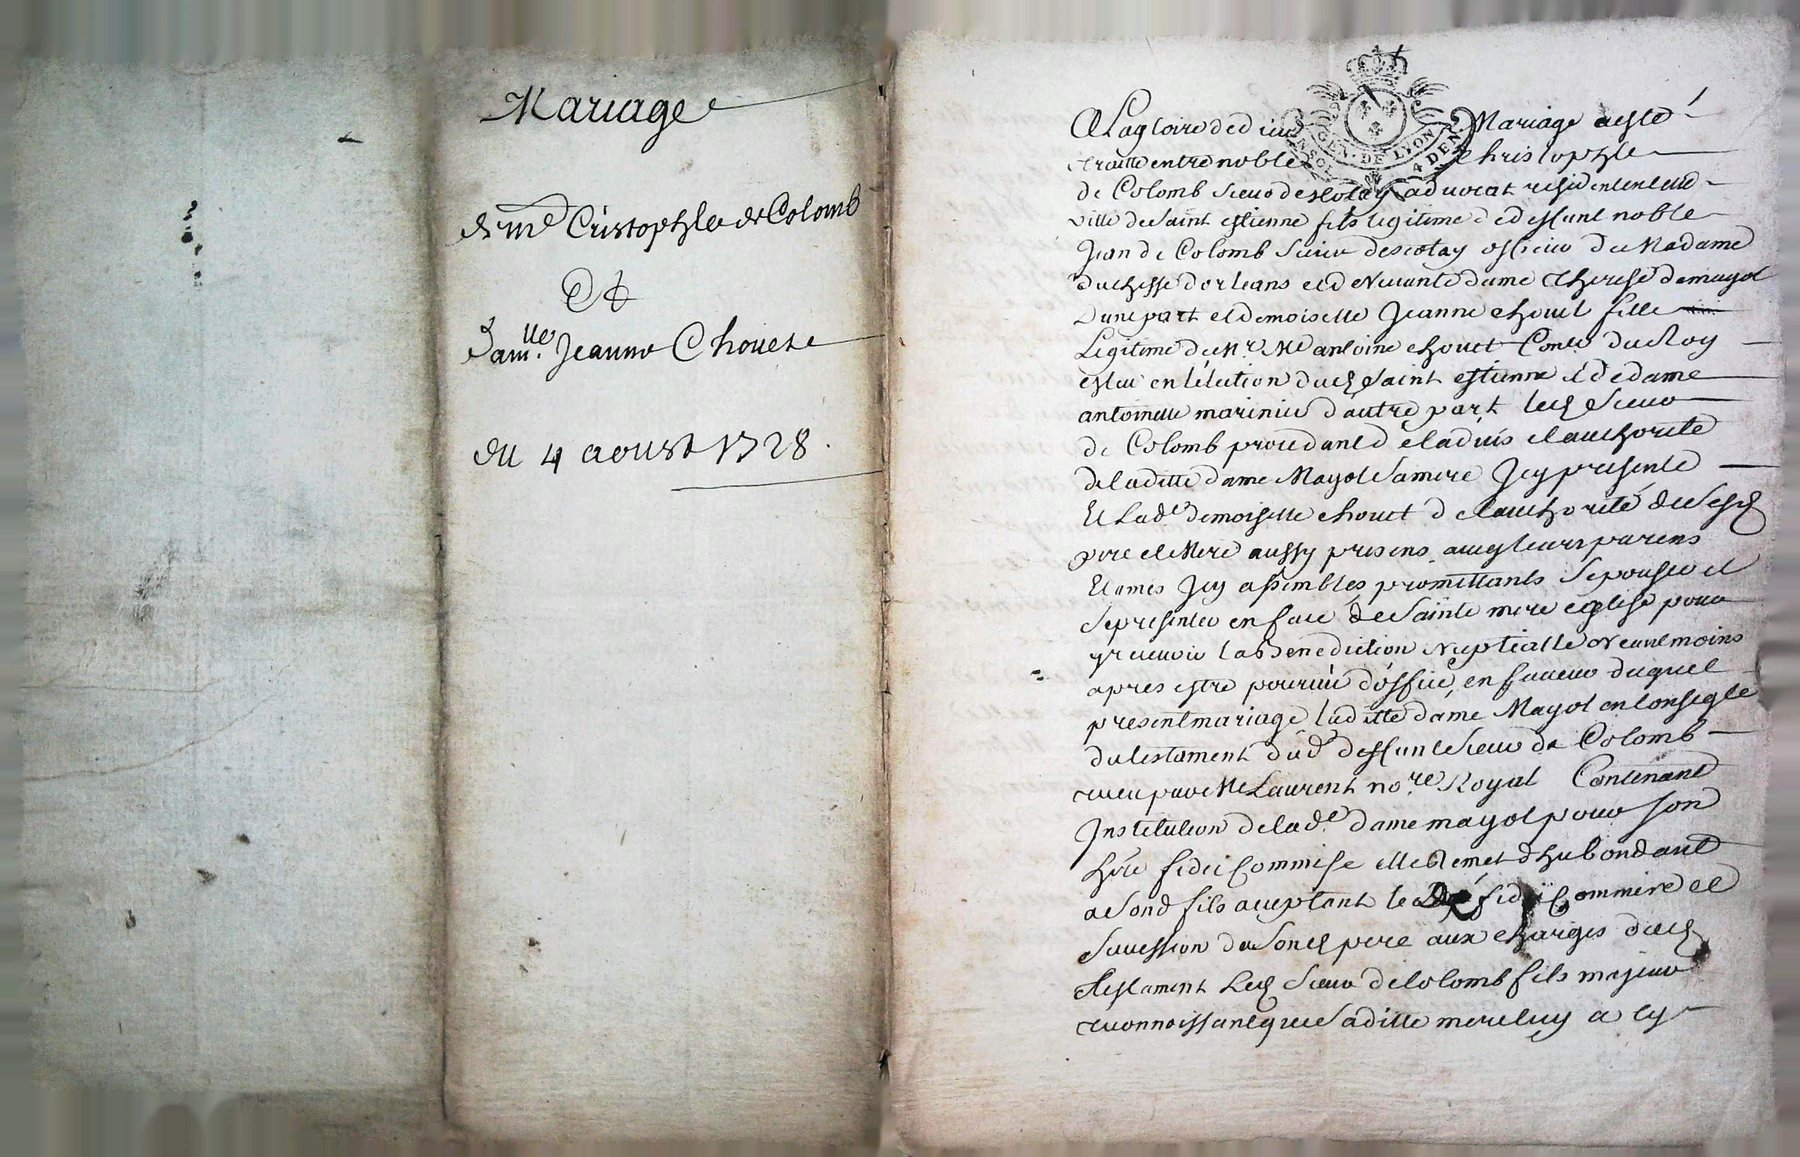 Mariage
de me Cristophle de Colomb
&
damlle. Jeanne Chouet
du 4 aoust 1728.
GEN. DE LYON 4 DEN.
A La gloire de dieu Mariage a esté
traitté entre noble Christophle
de Colomb sieur descotay advocat resident en cette
ville de saint estienne fils legitime de deffunt noble
Jean de Colomb sieur descotay officier de Madame
duchesse d'orleans et de vivante dame therese de mayol
d'une part et demoiselle Jeanne chouet fille
Legitime de Mr. Me antoine chouet Coner du Roy
esleu en l'élection dud saint estienne et de dame
antoinette marinier d'autre part led sieur
de Colomb procedant de l'advis et authorité
de laditte dame Mayol sa mere Icy presente
Et Lade demoiselle chouet de l'authorité de sesd
pere et Mere aussy presens avec leurs parens
Et amis Icy assemblés promettants s'epouser et
se presenter en face de sainte mere eglise pour
y recevoir la benediction nuptialle neantmoins
apres estre pourvu d'office, en faveur duquel
present mariage laditte dame Mayol en conseqle
du testament dud deffunt sieur de Colomb
receu par Me Laurent nore Royal Contenant
Institution de lade dame mayol pour son
here fideicommise elle Remet d'habondant
a sond fils acceptant led fideicommis et
succession de sond pere aux charges dud
testament Led sieur de Colomb fils majeur
reconnoissant que saditte mere luy a cy